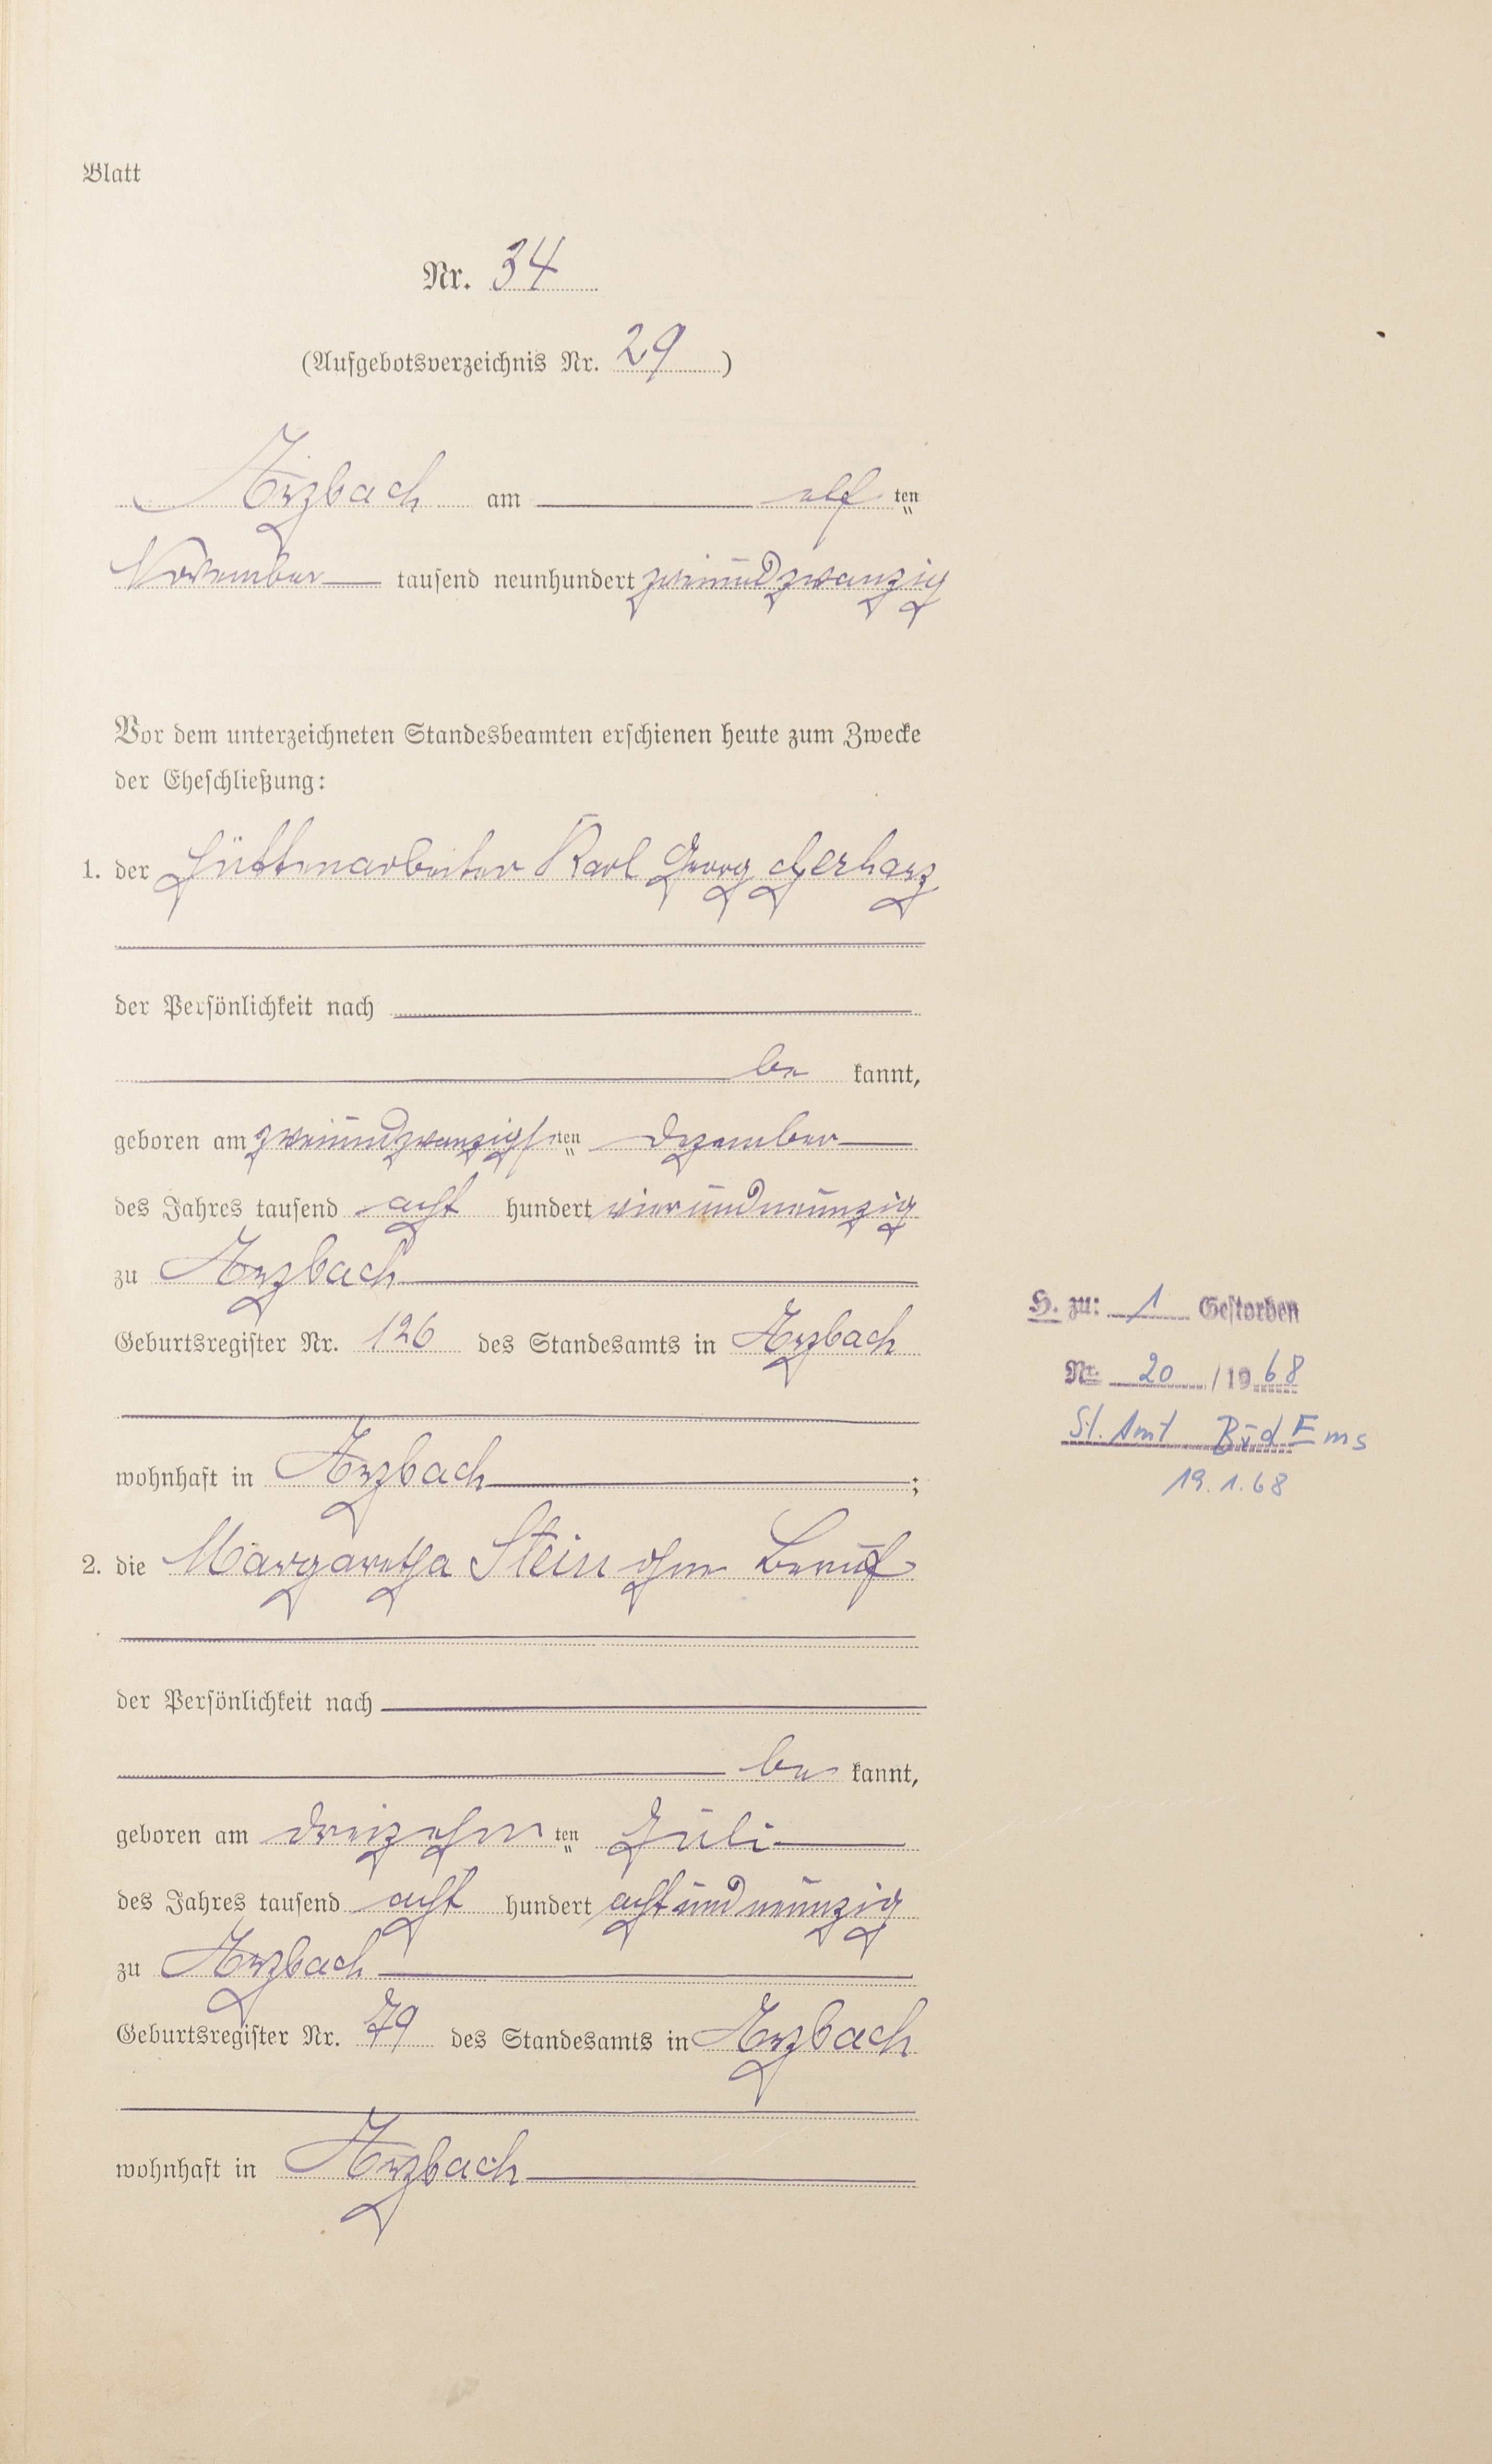 Blatt
Nr. 34
(Aufgebotsverzeichnis Nr. 29)
Arzbach am elf ten
November tausend neunhundert zweiundzwanzig
Vor dem unterzeichneten Standesbeamten erschienen heute zum Zwecke
der Eheschließung:
1. der Hüttenarbeiter Karl Georg Gerharz
der Persönlichkeit nach
be kannt,
geboren am zweiundzwanzigsten Dezember
des Jahres tausend acht hundert vierundneunzig
zu Arzbach
Geburtsregister Nr. 126 des Standesamts in Arzbach
H. zu: 1 Gestorben
Nr. 20 / 1968
St. Amt Bad Ems
19.1.68
wohnhaft in Arzbach ;
2. die Margaretha Stein ohne Beruf
der Persönlichkeit nach
be kannt,
geboren am dreizehn ten Juli
des Jahres tausend acht hundert achtundneunzig
zu Arzbach
Geburtsregister Nr. 79 des Standesamts in Arzbach
wohnhaft in Arzbach